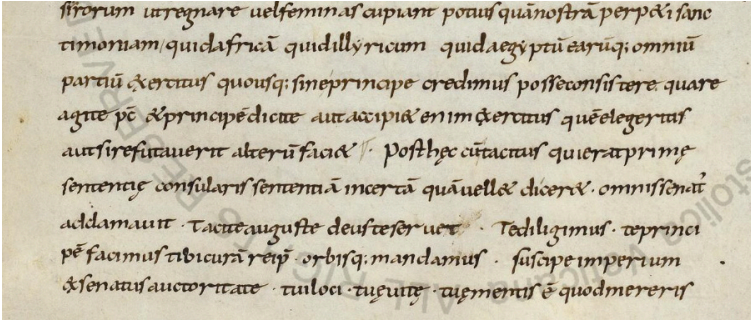 strorum ut regnare vel feminas cupiant potius quā nostrā perpeti sanc
timoniam, quid africā quid illyricum quid aegyptū earūq; omniū
partiū exercitus quousq; sine principe credimus posse consistere. quare
agite pc̄ & principē dicite aut accipi& enim exercitus quē elegeritis
aut si refutaverit alterū faci& · Post hęc cū tacitus qui erat primę
sententię consularis sententiā incertā quā vell& dicer& · omnis senat᾽
adclamavit · Tacite auguste deus te servet · Te diligimus · te princi
pē facimus tibi curā reip̄ · orbisq; mandamus · suscipe imperium
& senatus auctoritate · tui loci · tuę vitę · tuę mentis ē quod mereris